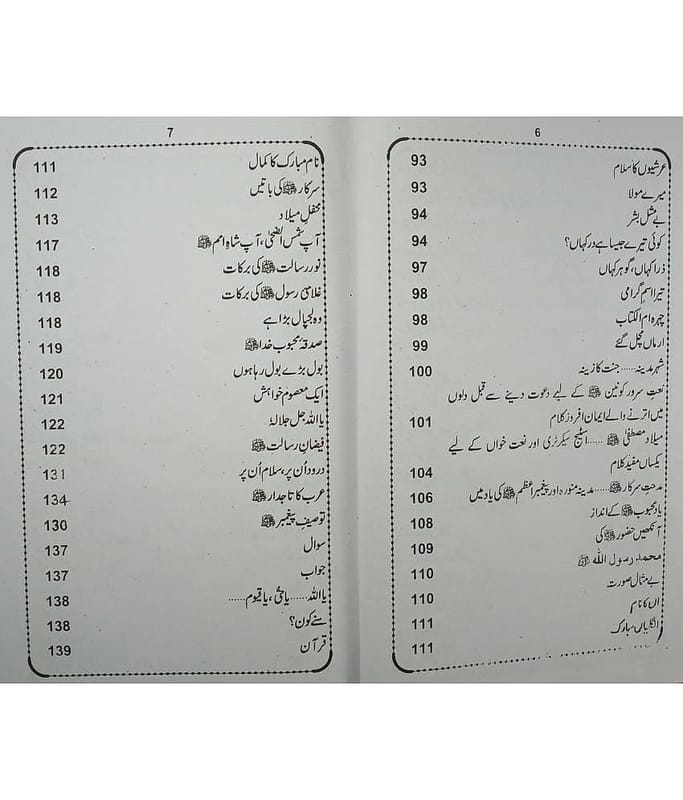 6
عرشیوں کا سلام 93
میرے مولا 93
بے مثل بشر 94
کوئی تیرے جیسا ہے در کہاں؟ 94
ذرا کہاں، گوہر کہاں 97
تیرا اسم گرامی 98
چہرہ ام الکتاب 98
ارماں مچل گئے 99
شہر مدینہ...... جنت کا زینہ 100
نعت سرور کونین ﷺ کے لیے دعوت دینے سے قبل دلوں
میں اترنے والے ایمان افروز کلام 101
میلاد مصطفیٰ ﷺ ...... اسٹیج سیکرٹری اور نعت خواں کے لیے
یکساں مفید کلام 104
مدحت سرکار ﷺ...... مدینہ منورہ اور پیغمبر اعظم ﷺ کی یاد میں 106
یاد محبوب ﷺ کے انداز 108
آنکھیں حضور ﷺ کی 109
محمد رسول اللہ ﷺ 110
بے مثال صورت 110
اں کا نام 111
انگلیاں مبارک 111
7
نام مبارک کا کمال 111
سرکار ﷺ کی باتیں 112
محفل میلاد 113
آپ شمس الضحیٰ، آپ شاہ امم ﷺ 117
نور رسالت ﷺ کی برکات 118
غلامی رسول ﷺ کی برکات 118
وہ لجپال بڑا ہے 118
صدقہ محبوب خدا ﷺ 119
بول بڑے بول رہا ہوں 120
ایک معصوم خواہش 121
یا اللہ جل جلالہٗ 122
فیضان رسالت ﷺ 122
درود اُن پر، سلام اُن پر 131
عرب کا تاجدار ﷺ 134
توصیف پیغمبر ﷺ 130
سوال 137
جواب 137
یا اللہ...... یا حیُّ، یا قیوم...... 138
سنے کون؟ 138
قرآن 139